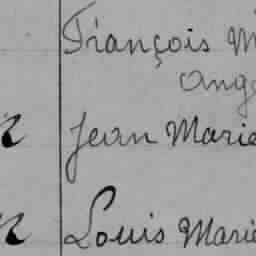 François M
Ang
n Jean Marie
n Louis Marie